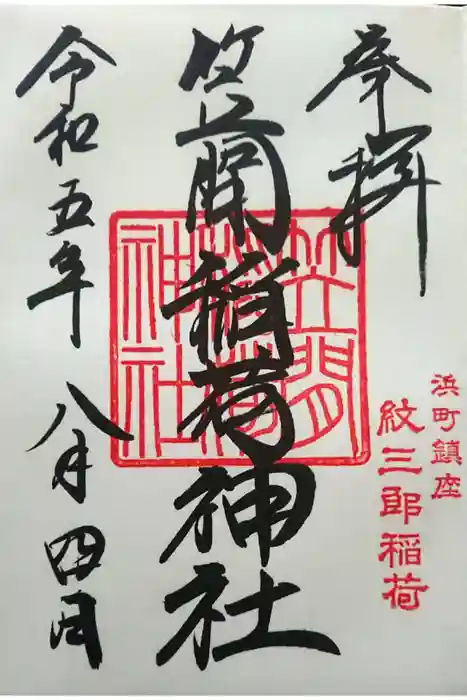 奉拝
浜町鎮座
紋三郎稲荷
笠間稲荷神社
笠間
稲荷
神社
令和五年 八月四日